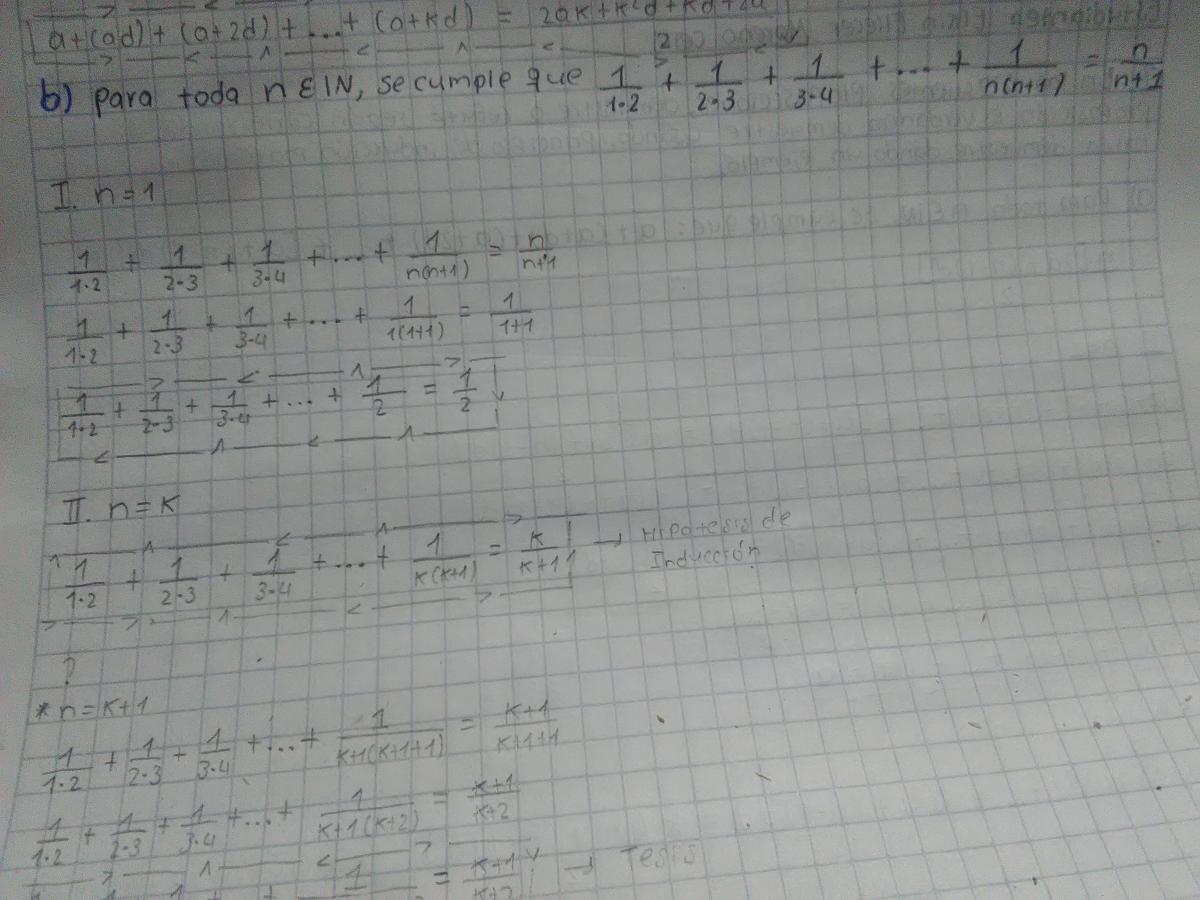 a+(ad)+(a+2d)+...+(a+kd) = 2ak+k²d+kd+2a
2
b) para toda n ∈ IN, se cumple que 1/1·2 + 1/2·3 + 1/3·4 + ... + 1/n(n+1) = n/n+1
I. n=1
1/1·2 + 1/2·3 + 1/3·4 + ... + 1/n(n+1) = n/n+1
1/1·2 + 1/2·3 + 1/3·4 + ... + 1/1(1+1) = 1/1+1
1/1·2 + 1/2·3 + 1/3·4 + ... + 1/2 = 1/2
II. n=k
1/1·2 + 1/2·3 + 1/3·4 + ... + 1/k(k+1) = k/k+1 → Hipotesis de
Inducción
?
* n=k+1
1/1·2 + 1/2·3 + 1/3·4 + ... + 1/k+1(k+1+1) = k+1/k+1+1
1/1·2 + 1/2·3 + 1/3·4 + ... + 1/k+1(k+2) = k+1/k+2
1 = k+1/k+2 → Tesis